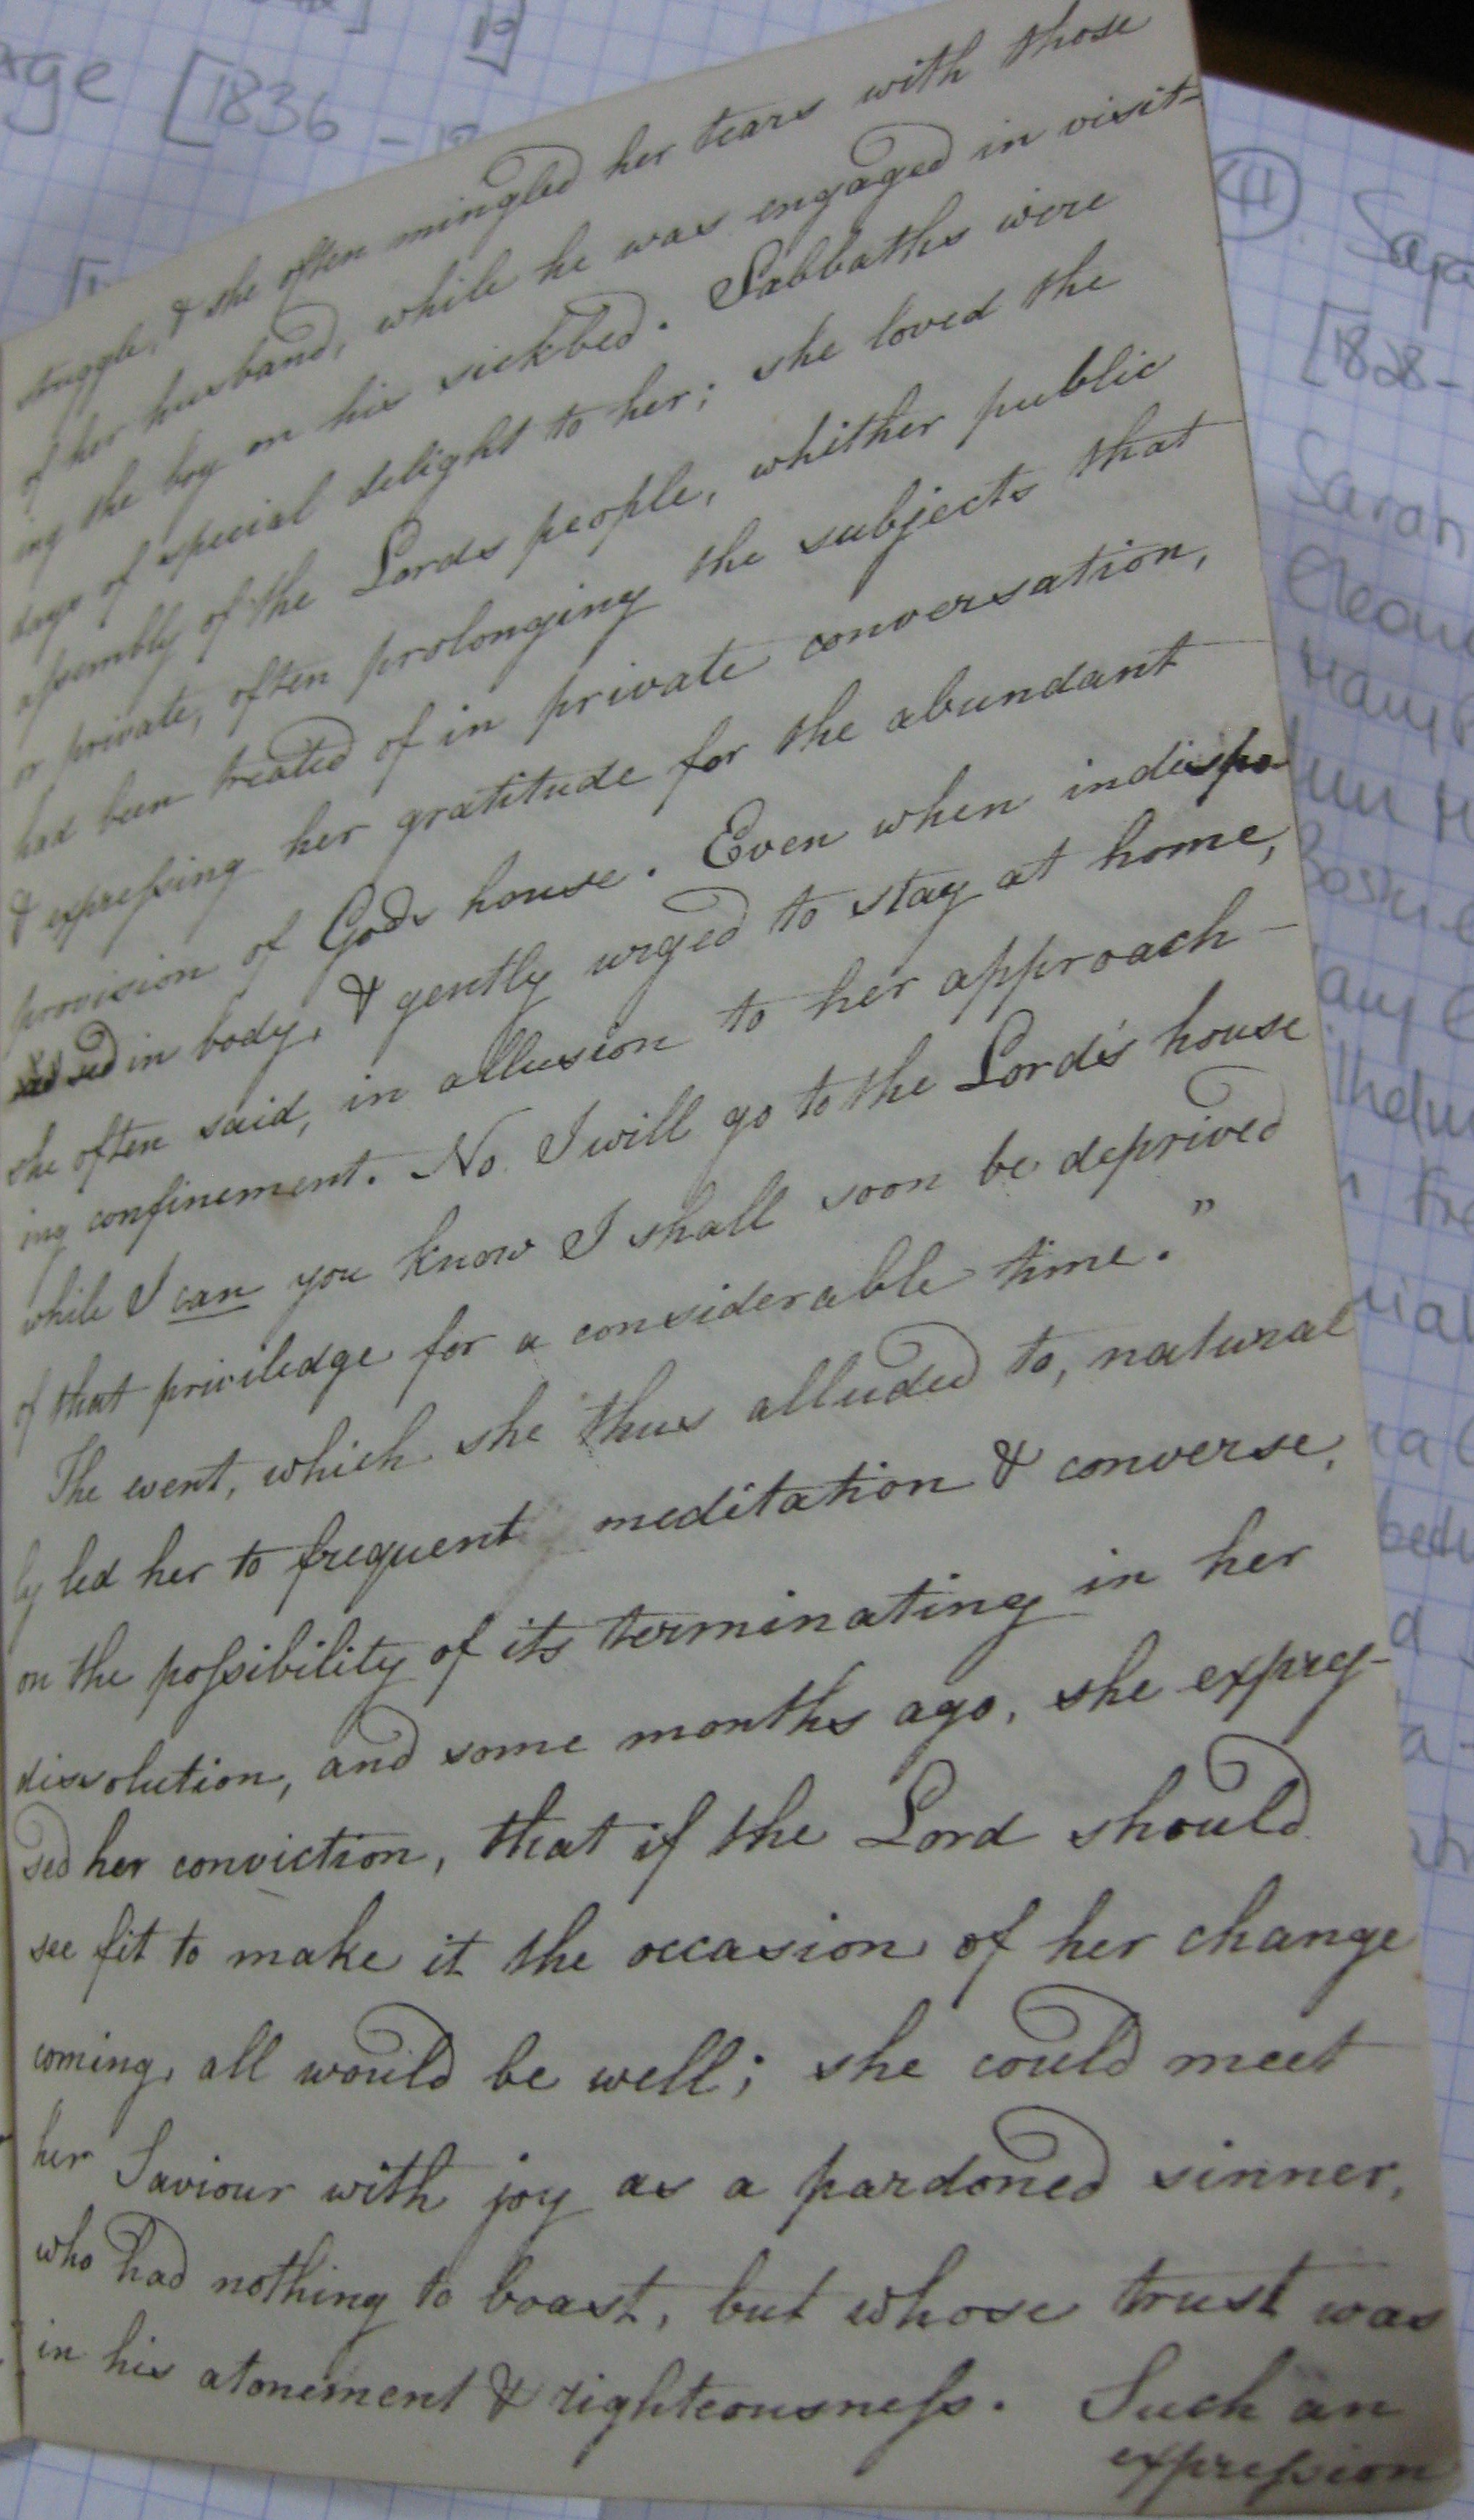 struggle, & she often mingled her tears with those
of her husband, while he was engaged in visit-
ing the boy on his sickbed. Sabbaths were
days of special delight to her; she loved the
assembly of the Lords people, whither public
or private, often prolonging the subjects that
has been treated of in private conversation,
& expressing her gratitude for the abundant
provision of Gods house. Even when indispo-
sed in body, & gently urged to stay at home,
she often said, in allusion to her approach-
ing confinement. No. I will go to the Lord's house
while I can you know I shall soon be deprived
of that priviledge for a considerable time."
The event, which she thus alluded to, natural
ly led her to frequent meditation & converse,
on the possibility of its terminating in her
dissolution, and some months ago, she expres-
sed her conviction, that if the Lord should
see fit to make it the occasion of her change
coming, all would be well; she could meet
her Saviour with joy as a pardoned sinner,
who had nothing to boast, but whose trust was
in his atonement & righteousness. Such an
expression
[1836 -
41.
[1828-
Sarah